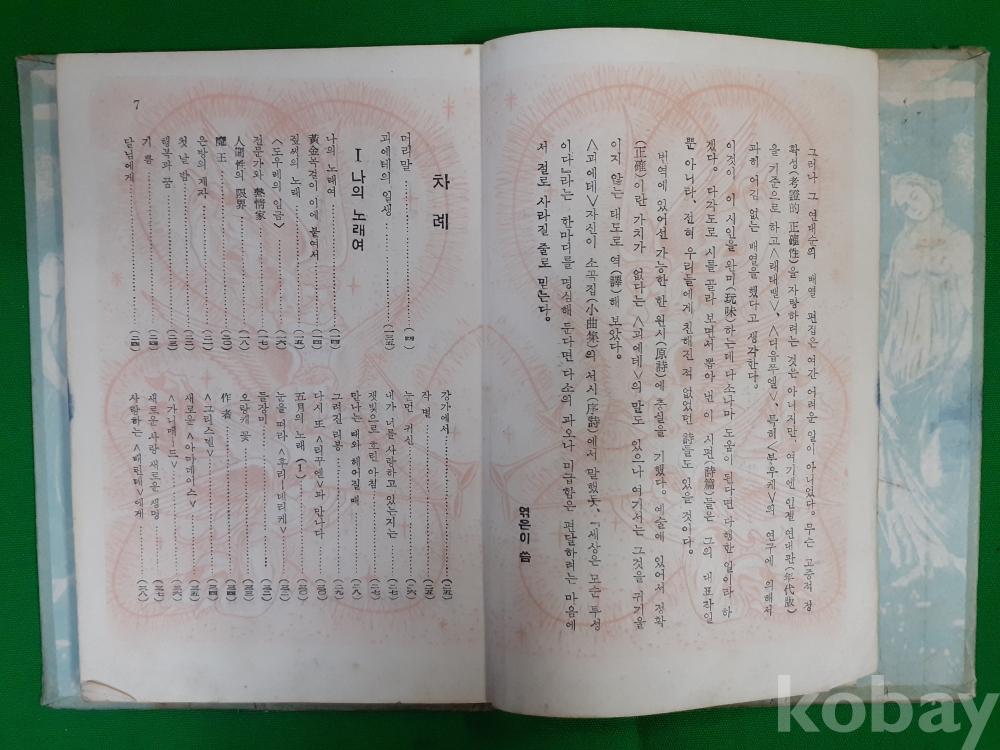 그러나 그 연대순의 배열 편집은 여간 어려운 일이 아니었다. 무슨 고증적 정
확성(考證的 正確性)을 자랑하려는 것은 아니지만, 여기엔 인젤 연대판(年代版)
을 기준으로 하고 <래태맬>, <디음푸엘>, 특히 <부우케>의 연구에 의해서
과히 어김 없는 배열을 했다고 생각한다.
이것이 이 시인을 완미(玩味)하는데 다소나마 도움이 된다면 다행한 일이라 하
겠다. 다각도로 시를 골라 보면서 뽑아 낸 이 시편(詩篇)들은 그의 대표작일
뿐 아니라, 전혀 우리들에게 친해진 적 없었던 詩들도 있을 것이다.
번역에 있어선 가능한 한 원시(原詩)에 충실을 기했다. 예술에 있어서 정확
(正確)이란 가치가 없다는 <괴에테>의 말도 있으나 여기서는 그것을 귀기울
이지 않는 태도로 역(譯)해 보았다.
<괴에테>자신이 소곡집(小曲集)의 서시(序詩)에서 말했듯, 『세상은 모순 투성
이다』라는 한마디를 명심해 둔다면 다소의 과오나 미급함은 편달하려는 마음에
서 절로 사라질 줄로 믿는다.
엮은이 씀
차례
머리말 (四)
괴에테의 일생 (三五)
Ⅰ 나의 노래여
나의 노래여 (一四)
黃金목걸이 이에 붙여서 (一四)
짚씨의 노래 (一五)
<도우레의 임금>
전문가와 熱情家 (一七)
人間性의 限界 (一八)
魔王
은방의 계자
첫날 밤
행복과 꿈
기쁨
달님에게 (二四)
강가에서 (二五)
작별 (二五)
눈먼 귀신 (二六)
내가 너를 사랑하고 있는지는 (二七)
잿빛으로 흐린 아침 (二七)
만나는 때와 헤어질 때 (二八)
그려진 리봉 (二九)
다시 또 <리꾸엔>과 만나다 (三〇)
五月의 노래 (1) (三〇)
눈을 떠라 <후리―데리케>
들장미
오랑캐꽃 (三三)
作者 (三四)
<그리스텔> (三四)
새로운 <아마데이스> (三六)
<가니매―드>
새로운 사랑 새로운 생명 (三七)
사랑하는 <베린데>에게 (三八)
7
kobay